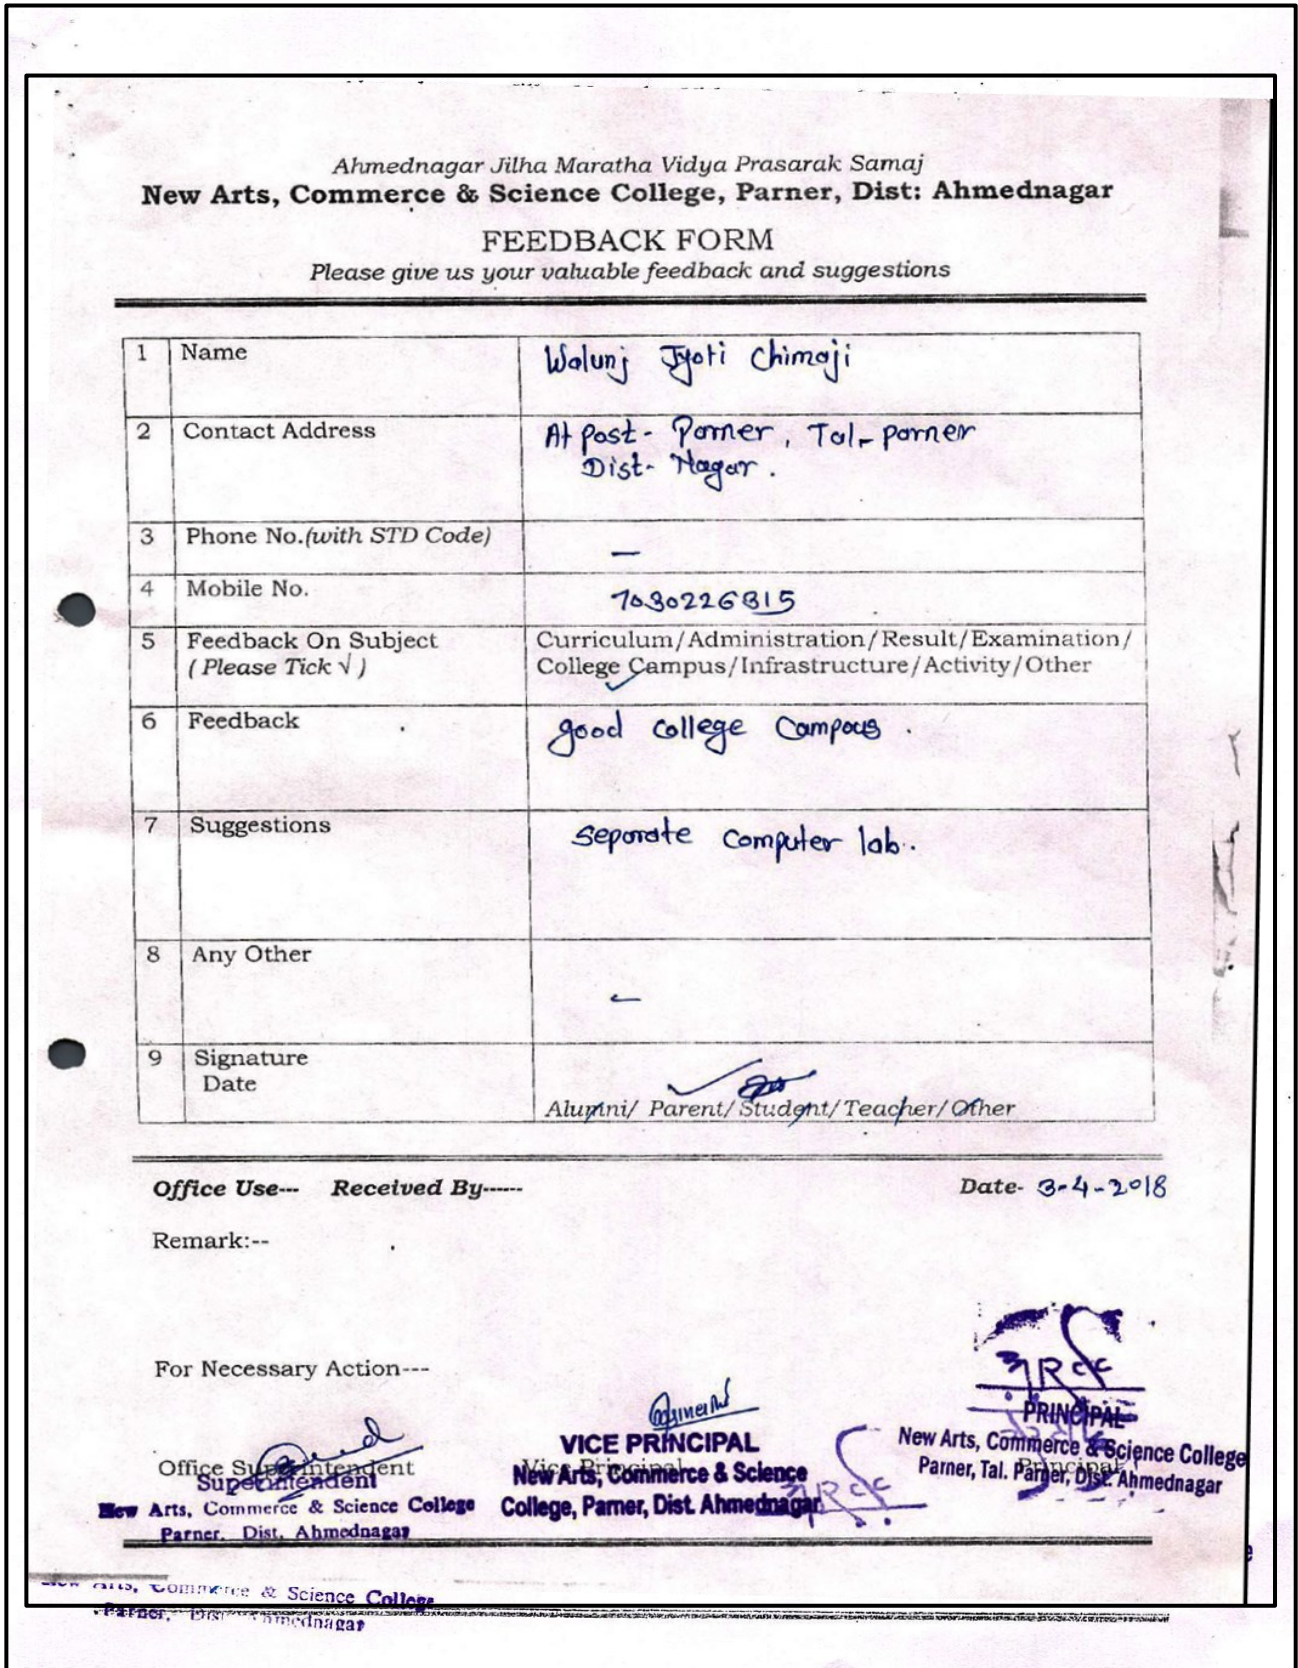 Ahmednagar Jilha Maratha Vidya Prasarak Samaj
New Arts, Commerce & Science College, Parner, Dist: Ahmednagar
FEEDBACK FORM
Please give us your valuable feedback and suggestions
1 Name Walunj Jyoti Chimaji
2 Contact Address At Post- Parner, Tal- parner
Dist- Nagar.
3 Phone No.(with STD Code) —
4 Mobile No. 7030226815
5 Feedback On Subject Curriculum/Administration/Result/Examination/
( Please Tick √ ) College Campus/Infrastructure/Activity/Other
6 Feedback good college Campous.
7 Suggestions Separate Computer lab.
8 Any Other —
9 Signature
Date
Alumni/ Parent/Student/Teacher/Other
Office Use--- Received By------ Date- 3-4-2018
Remark:--
For Necessary Action---
PRINCIPAL
New Arts, Commerce & Science College
Parner, Tal. Parner, Dist. Ahmednagar
Principal
VICE PRINCIPAL
Vice Principal
New Arts, Commerce & Science
College, Parner, Dist. Ahmednagar
Office Superintendent
Superintendent
New Arts, Commerce & Science College
Parner, Dist. Ahmednagar
New Arts, Commerce & Science College
Parner, Dist. Ahmednagar